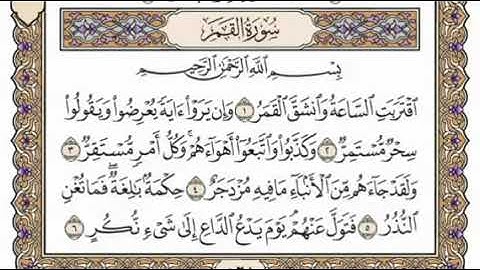 سُورَةُ القَمَرِ
بِسْمِ اللَّهِ الرَّحْمَٰنِ الرَّحِيمِ
اقْتَرَبَتِ السَّاعَةُ وَانشَقَّ الْقَمَرُ ١ وَإِن يَرَوْا ءَايَةً يُعْرِضُوا وَيَقُولُوا
سِحْرٌ مُّسْتَمِرٌّ ٢ وَكَذَّبُوا وَاتَّبَعُوا أَهْوَاءَهُمْ ۚ وَكُلُّ أَمْرٍ مُّسْتَقِرٌّ ٣
وَلَقَدْ جَاءَهُم مِّنَ الْأَنبَاءِ مَا فِيهِ مُزْدَجَرٌ ٤ حِكْمَةٌ بَالِغَةٌ ۖ فَمَا تُغْنِ
النُّذُرُ ٥ فَتَوَلَّ عَنْهُمْ ۘ يَوْمَ يَدْعُ الدَّاعِ إِلَىٰ شَيْءٍ نُّكُرٍ ٦